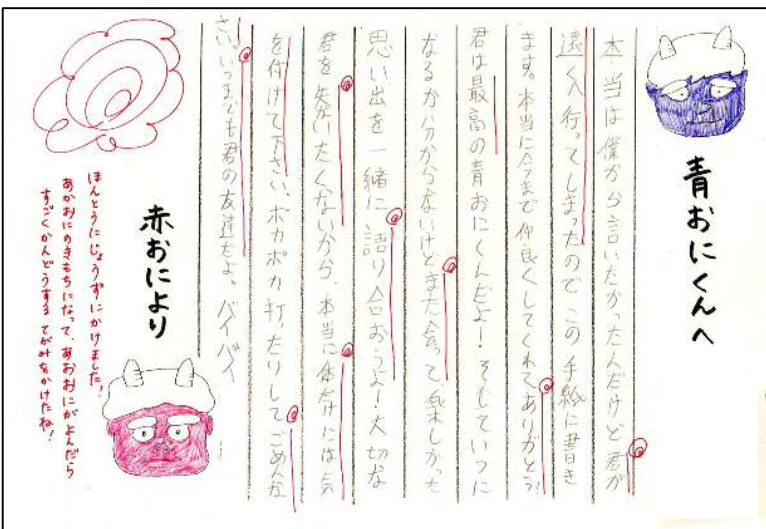 青おにくんへ
本当は僕から言いたかったんだけど君が
遠くへ行ってしまったのでこの手紙に書き
ます。本当に今まで仲良くしてくれてありがとう!
君は最高の青おにくんだよ!そしていつに
なるか分からないけどまた会って楽しかった
思い出を一緒に語り合おうよ!大切な
君を失ないたくないから、本当に体だけには気
を付けて下さい。ポカポカ打ったりしてごめんな
さい。いつまでも君の友達だよ。バイバイ
赤おにより
ほんとうにじょうずにかけました!
あかおにのきもちになって、あおおにがよんだら
すごくかんどうする てがみをかけたね!